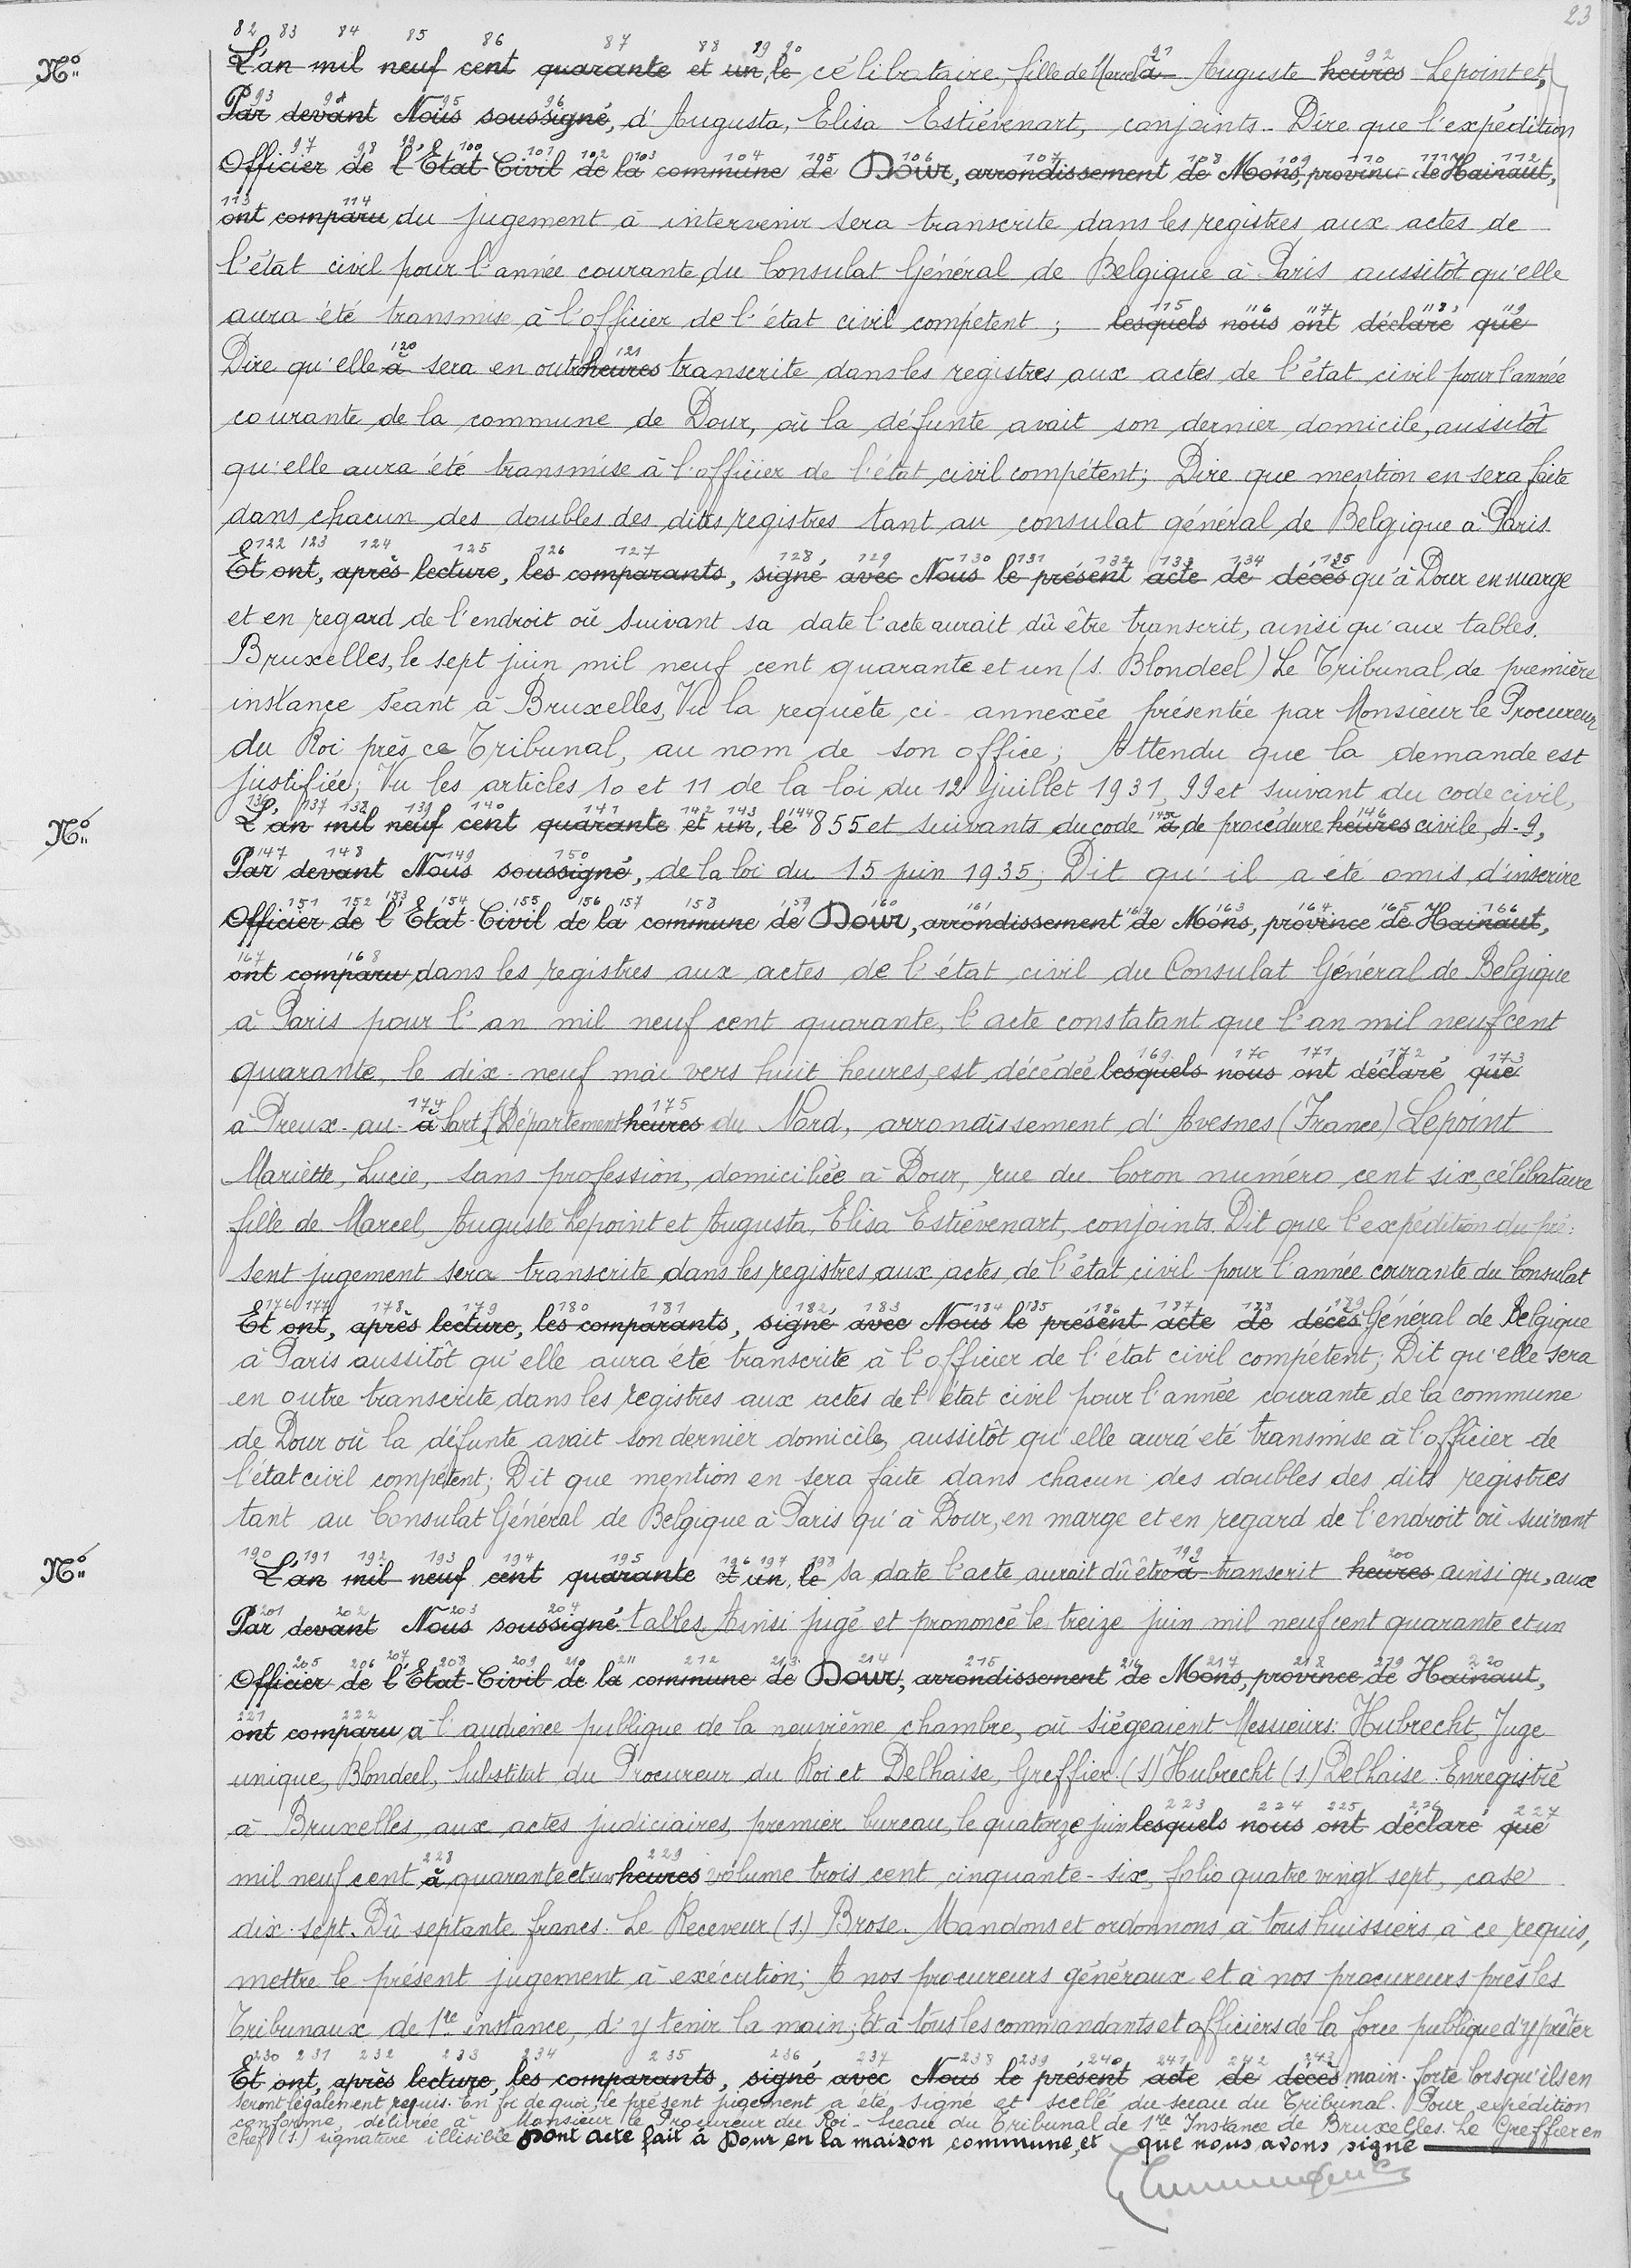 23
82 83 84 85 86 87 88 89 90 91 92
N° L'an mil neuf cent quarante et un, le célibataire, fille de Marcel à Auguste heures Lepoint et,
93 94 95 96
Par devant Nous soussigné, d'Augusta, Elisa Estiévenart, conjoints. Dire que l'expédition
97 98 99 100 101 102 103 104 105 106 107 108 109 110 111 112
Officier de l'Etat-Civil de la commune de Dour, arrondissement de Mons, province de Hainaut,
113 114
ont comparu du jugement à intervenir sera transcrite dans les registres aux actes de
l'état civil pour l'année courante du Consulat Général de Belgique à Paris aussitôt qu'elle
115 116 117 118 119
aura été transmise à l'officier de l'état civil compétent ; lesquels nous ont déclaré que
120 121
Dire qu'elle à sera en outre heures transcrite dans les registres aux actes de l'état civil pour l'année
courante de la commune de Dour, où la défunte avait son dernier domicile, aussitôt
qu'elle aura été transmise à l'officier de l'état civil compétent ; Dire que mention en sera faite
dans chacun des doubles des dits registres tant au consulat général de Belgique à Paris
122 123 124 125 126 127 128 129 130 131 132 133 134 135
Et ont, après lecture, les comparants, signé avec Nous le présent acte de décès qu'à Dour en marge
et en regard de l'endroit où suivant sa date l'acte aurait dû être transcrit, ainsi qu'aux tables.
Bruxelles, le sept juin mil neuf cent quarante et un (s. Blondeel) Le Tribunal de première
instance séant à Bruxelles, Vu la requête ci-annexée présentée par Monsieur le Procureur
du Roi près ce Tribunal, au nom de son office ; Attendu que la demande est
justifiée ; Vu les articles 10 et 11 de la loi du 12 juillet 1931, 99 et suivant du code civil,
136 137 138 139 140 141 142 143 144 145 146
N° L'an mil neuf cent quarante et un, le 855 et suivants du code à de procédure heures civile, 4-9,
147 148 149 150
Par devant Nous soussigné, de la loi du 15 juin 1935 ; Dit qu'il a été omis d'inscrire
151 152 153 154 155 156 157 158 159 160 161 162 163 164 165 166
Officier de l'Etat-Civil de la commune de Dour, arrondissement de Mons, province de Hainaut,
167 168
ont comparu dans les registres aux actes de l'état civil du Consulat Général de Belgique
à Paris pour l'an mil neuf cent quarante, l'acte constatant que l'an mil neuf cent
169 170 171 172 173
quarante, le dix-neuf mai vers huit heures, est décédée lesquels nous ont déclaré que
174 175
à Preux-au-à Sart, (Département heures du Nord, arrondissement d'Avesnes (France) Lepoint
Mariette, Lucie, sans profession, domiciliée à Dour, rue du Coron numéro cent six, célibataire
fille de Marcel, Auguste Lepoint et Augusta, Elisa Estiévenart, conjoints. Dit que l'expédition du pré-
sent jugement sera transcrite dans les registres aux actes de l'état civil pour l'année courante du Consulat
176 177 178 179 180 181 182 183 184 185 186 187 188 189
Et ont, après lecture, les comparants, signé avec Nous le présent acte de décès Général de Belgique
à Paris aussitôt qu'elle aura été transcrite à l'officier de l'état civil compétent ; Dit qu'elle sera
en outre transcrite dans les registres aux actes de l'état civil pour l'année courante de la commune
de Dour où la défunte avait son dernier domicile, aussitôt qu'elle aura été transmise à l'officier de
l'état civil compétent ; Dit que mention en sera faite dans chacun des doubles des dits registres
tant au Consulat Général de Belgique à Paris qu'à Dour, en marge et en regard de l'endroit où suivant
190 191 192 193 194 195 196 197 198 199 200
N° L'an mil neuf cent quarante et un, le sa date l'acte aurait dû être à transcrit heures ainsi qu'aux
201 202 203 204
Par devant Nous soussigné tables Ainsi jugé et prononcé le treize juin mil neuf cent quarante et un
205 206 207 208 209 210 211 212 213 214 215 216 217 218 219 220
Officier de l'Etat-Civil de la commune de Dour, arrondissement de Mons, province de Hainaut,
221 222
ont comparu à l'audience publique de la neuvième chambre, où siégeaient Messieurs : Hubrecht, Juge
unique, Blondeel, Substitut du Procureur du Roi et Delhaise, Greffier. (s) Hubrecht (s) Delhaise. Enregistré
223 224 225 226 227
à Bruxelles, aux actes judiciaires, premier bureau, le quatorze juin lesquels nous ont déclaré que
228 229
mil neuf cent à quarante et un heures volume trois cent cinquante-six, folio quatre vingt sept, case
dix-sept. Dû septante francs. Le Receveur (s.) Brose. Mandons et ordonnons à tous huissiers à ce requis,
mettre le présent jugement à exécution ; A nos procureurs généraux et à nos procureurs près les
Tribunaux de 1re instance, d'y tenir la main ; Et à tous les commandants et officiers de la force publique d'y prêter
230 231 232 233 234 235 236 237 238 239 240 241 242 243
Et ont, après lecture, les comparants, signé avec Nous le présent acte de décès main-forte lorsqu'ils en
seront légalement requis. En foi de quoi, le présent jugement a été signé et scellé du sceau du Tribunal. Pour expédition
conforme, délivrée à Monsieur le Procureur du Roi - Sceau du Tribunal de 1re Instance de Bruxelles. Le Greffier en
chef (s.) signature illisible Dont acte fait à Dour en la maison commune, et que nous avons signé